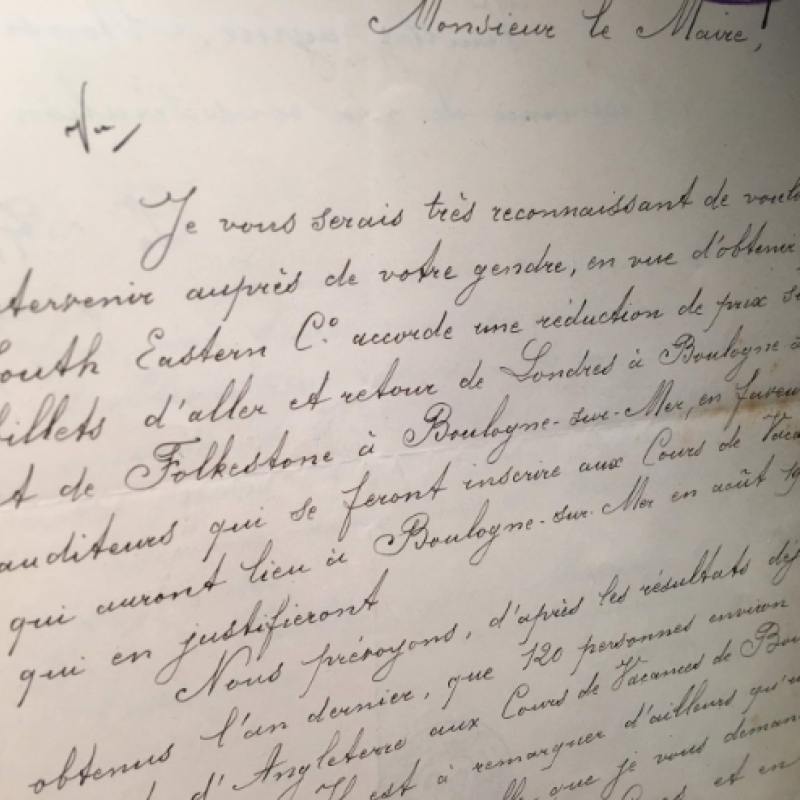 Monsieur le Maire,
Je vous serais très reconnaissant de voulo
tervenir auprès de votre gendre, en vue d'obtenir
outh Eastern C.º accorde une réduction de prix s
billets d'aller et retour de Londres à Boulogne
t de Folkestone à Boulogne-sur-Mer, en faveu
auditeurs qui se feront inscrire aux Cours de Vaca
qui auront lieu à Boulogne-sur-Mer en août 19
qui en justifieront
Nous prévoyons, d'après les résultats déj
obtenus l'an dernier, que 120 personnes environ
d'Angleterre aux Cours de Vacances de Bou
Il est à remarquer d'ailleurs qu'
que je vous deman
et en